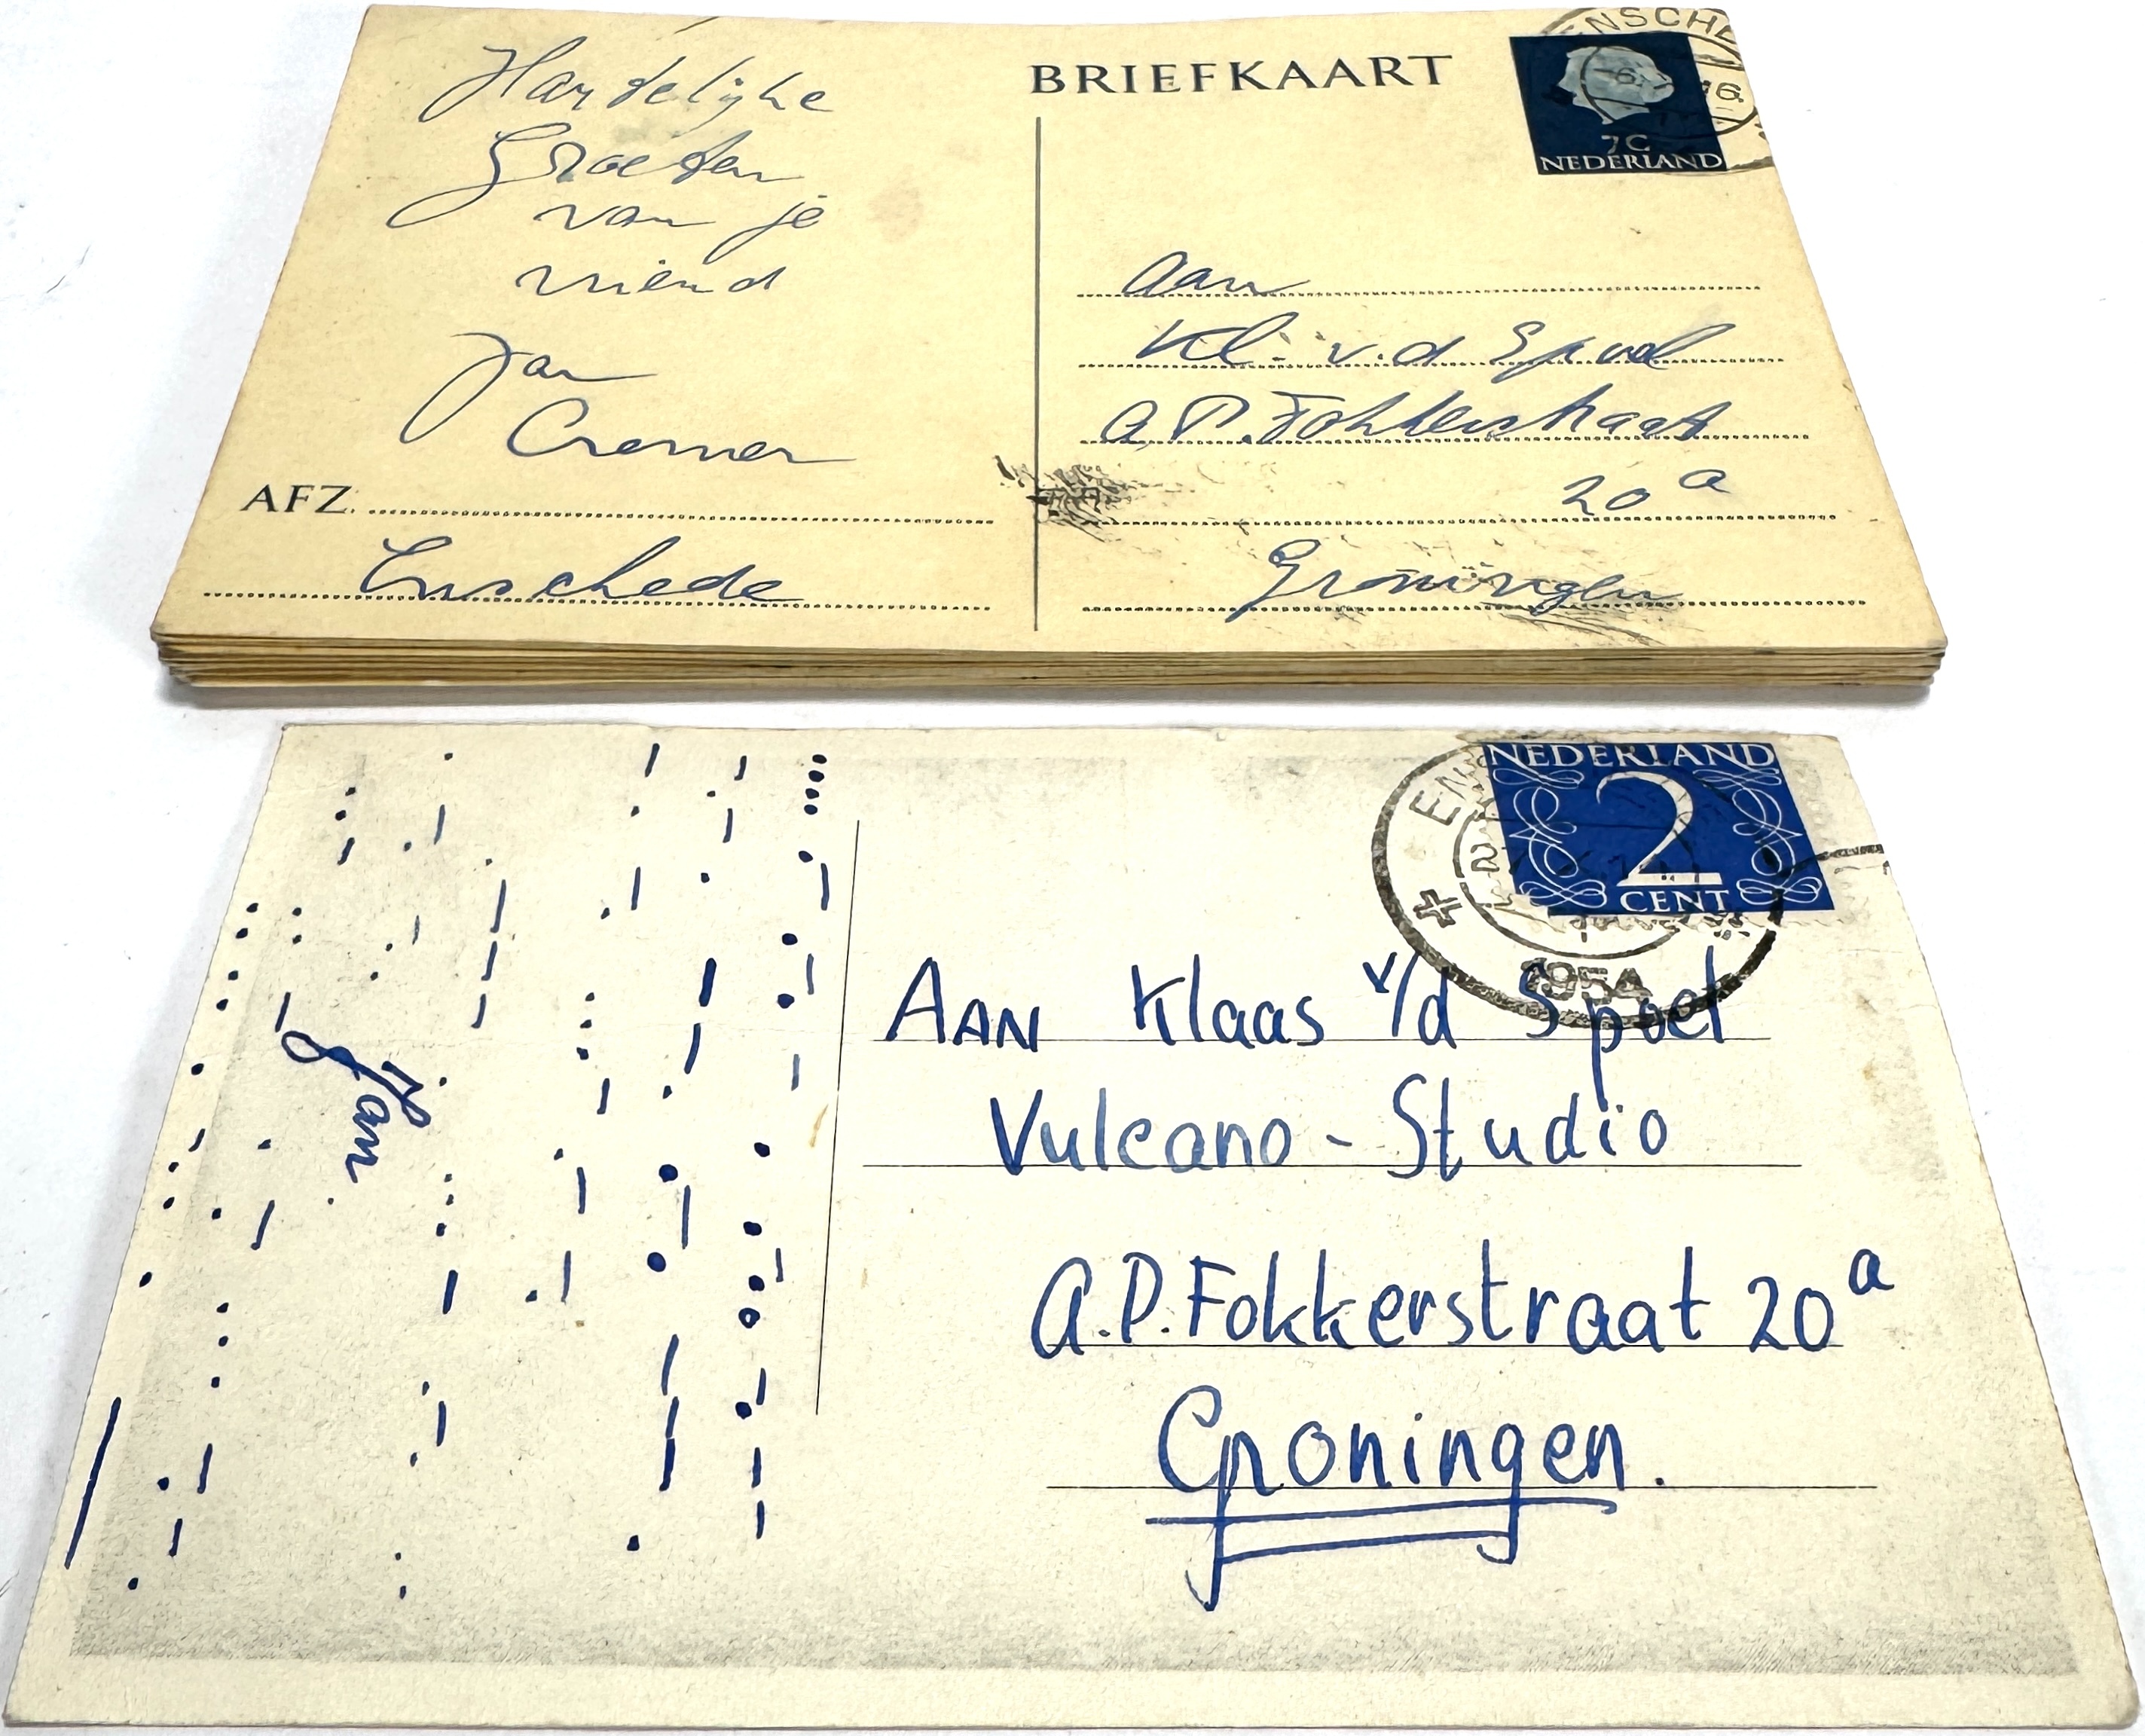 Hartelijke
Groeten
van je
vriend
Jan
Cremer
AFZ.
Enschede
BRIEFKAART
ENSCHE
7C
NEDERLAND
aan
Kl. v.d Spoel
A.P. Fokkerstraat
20a
Groningen
Jan.
NEDERLAND
2
CENT
EN
1954
AAN Klaas v/d Spoel
Vulcano - Studio
A.P. Fokkerstraat 20a
Groningen.